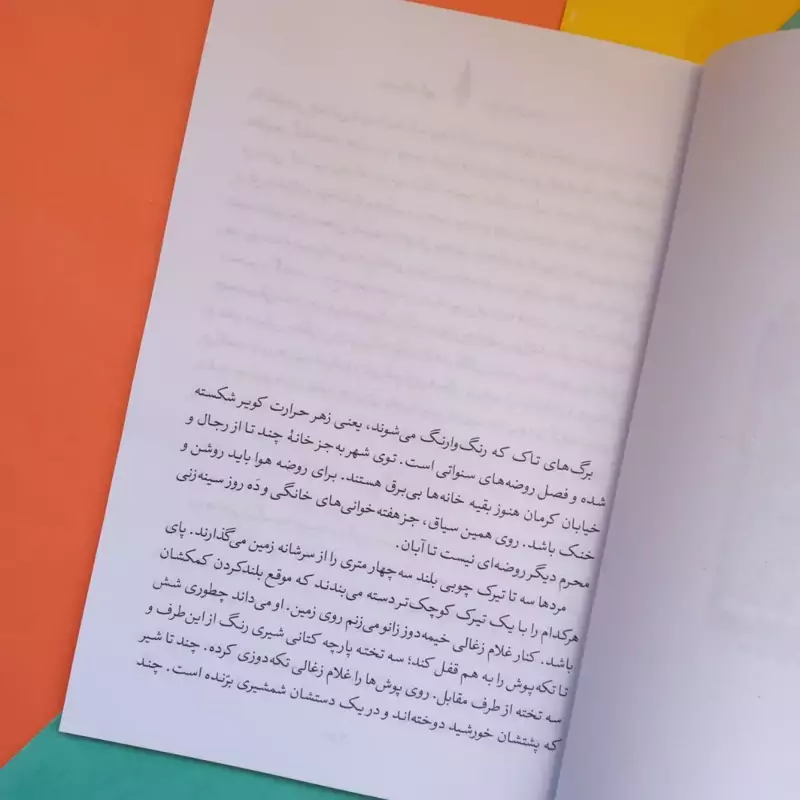 برگ‌های تاک که رنگ‌وارنگ می‌شوند، یعنی زهر حرارت کویر شکسته
شده و فصل روضه‌های سنواتی است. توی شهر به‌جز خانهٔ چند تا از رجال و
خیابان کرمان هنوز بقیه خانه‌ها بی‌برق هستند. برای روضه هوا باید روشن و
خنک باشد. روی همین سیاق، جز هفته‌خوانی‌های خانگی و دَه روز سینه‌زنی
محرم دیگر روضه‌ای نیست تا آبان.
مردها سه تا تیرک چوبی بلند سه‌چهار متری را از سرشانه زمین می‌گذارند. پای
هرکدام را با یک تیرک کوچک‌تر دسته می‌بندند که موقع بلندکردن کمکشان
باشد. کنار غلام زغالی خیمه‌دوز زانو می‌زنم روی زمین. او می‌داند چطوری شش
تا تکه‌پوش را به هم قفل کند؛ سه تخته پارچه کتانی شیری رنگ از این‌طرف و
سه تخته از طرف مقابل. روی پوش‌ها را غلام زغالی تکه‌دوزی کرده. چند تا شیر
که پشتشان خورشید دوخته‌اند و در یک دستشان شمشیری برّنده است. چند